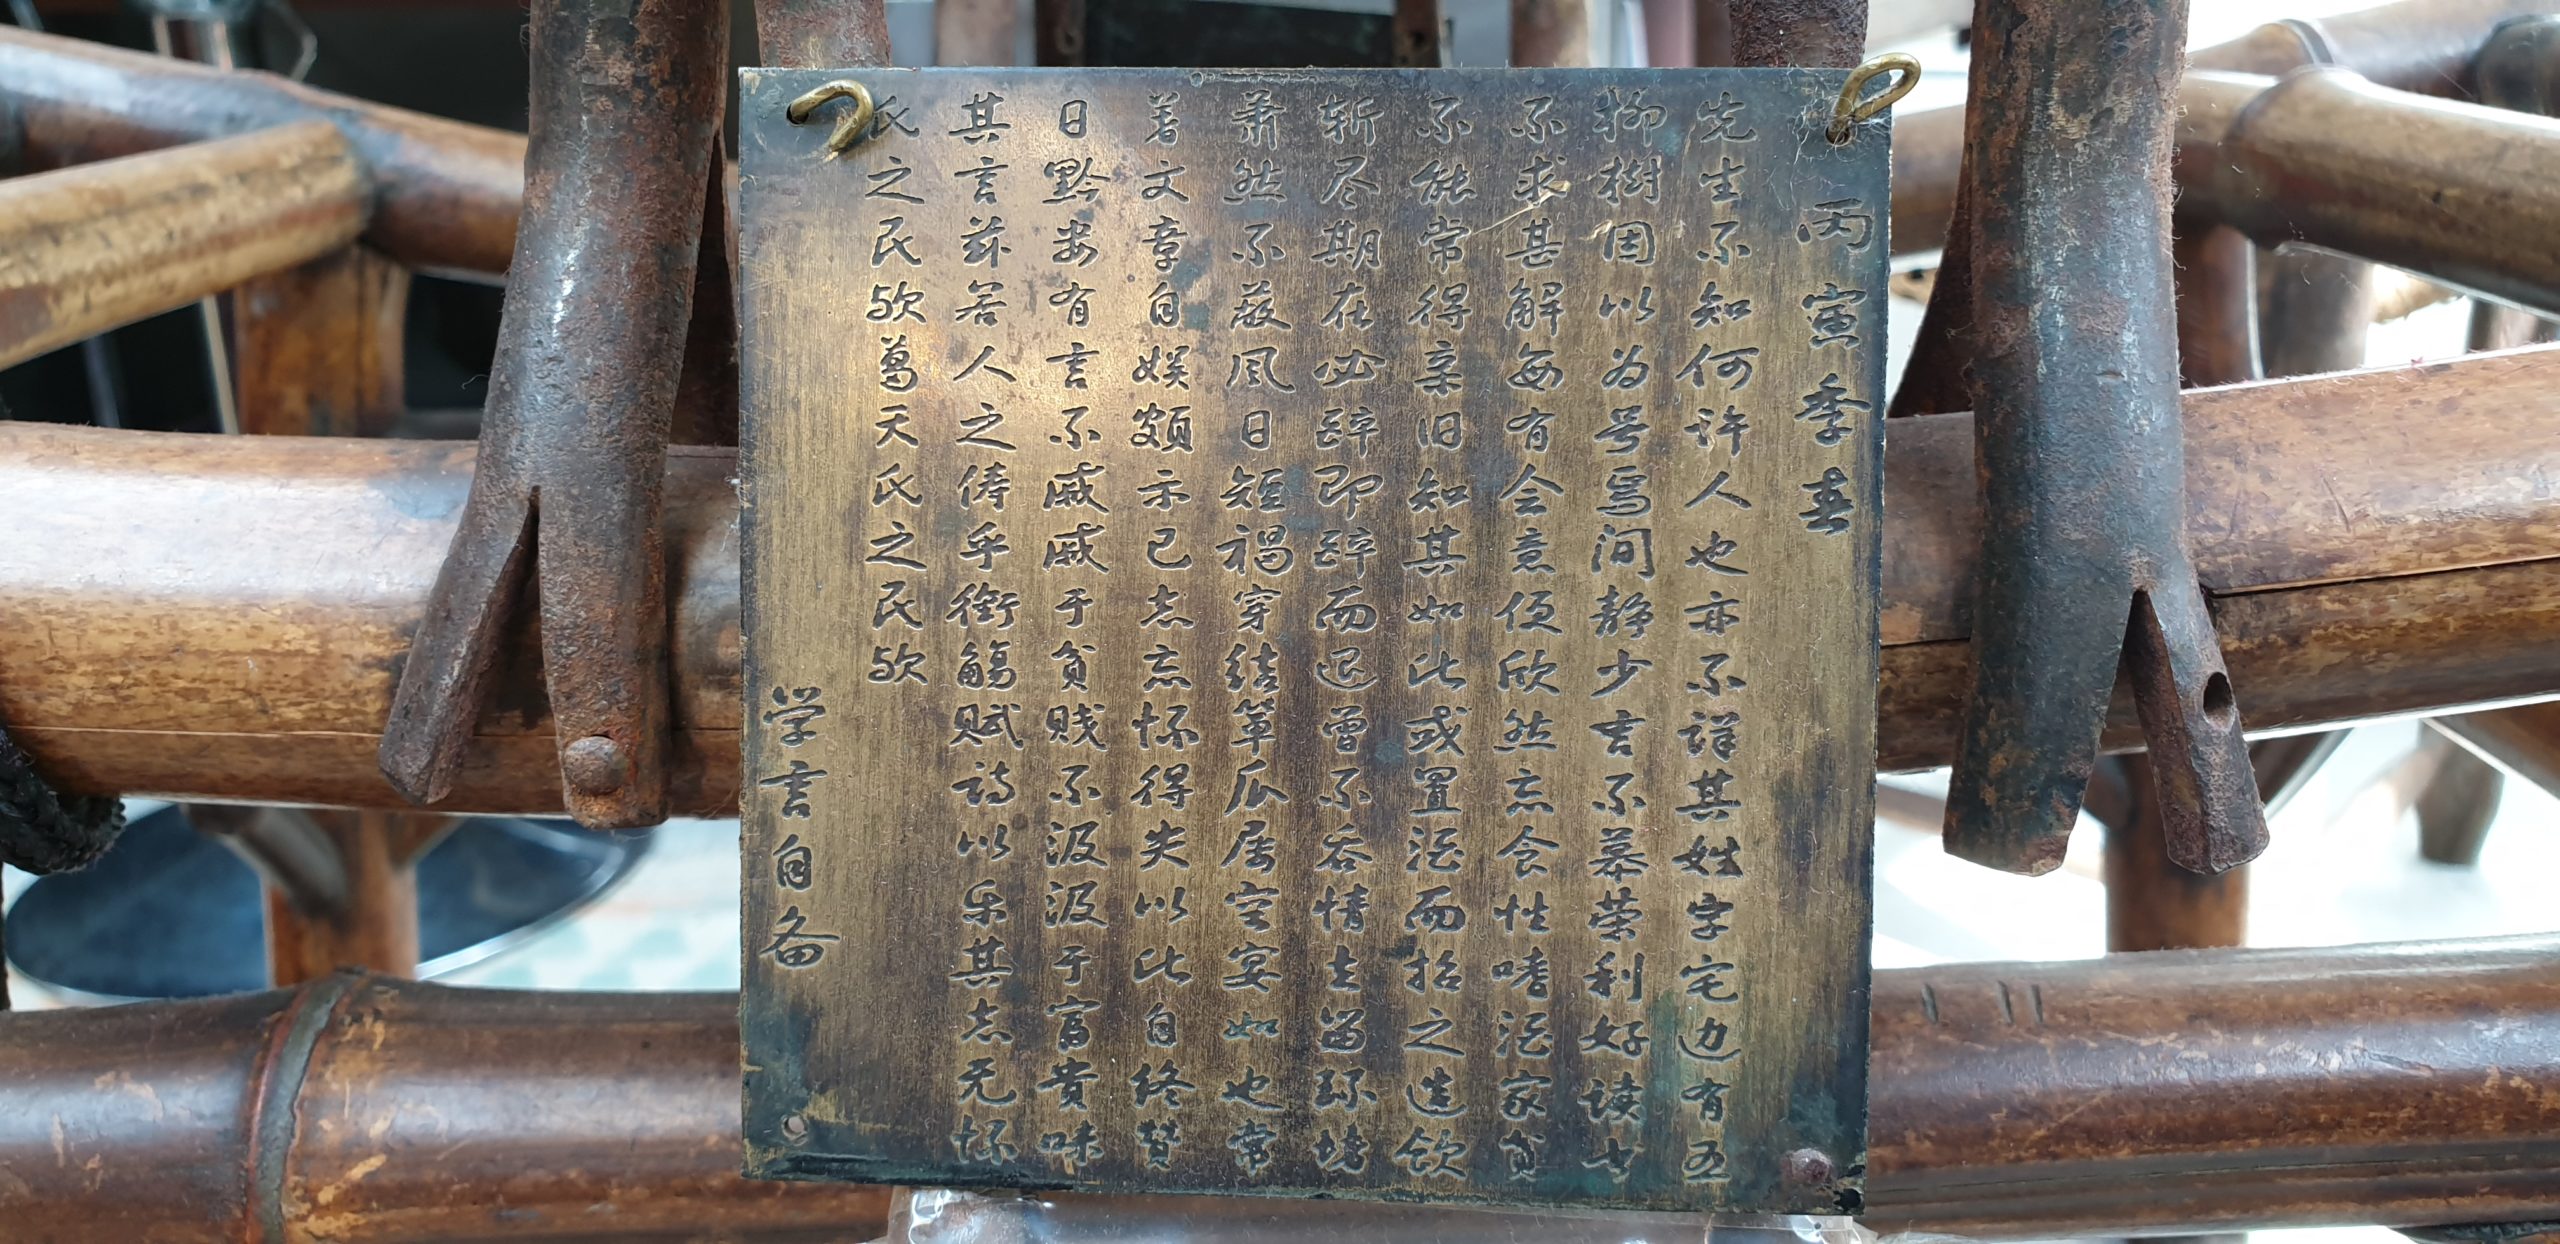 丙寅季春
先生不知何许人也亦不详其姓字宅边有五
柳樹因以为号焉闲静少言不慕荣利好读书
不求甚解每有会意便欣然忘食性嗜酒家贫
不能常得亲旧知其如此或置酒而招之造饮
斩尽期在必醉即醉而退曾不吝情去留环堵
萧然不蔽风日短褐穿结箪瓜屡空宴如也常
著文章自娱颇示己志忘怀得失以此自终赞
曰黔娄有言不戚戚于贫贱不汲汲于富贵味
其言兹若人之俦乎衔觞赋诗以乐其志无怀
氏之民欤葛天氏之民欤
学言自备